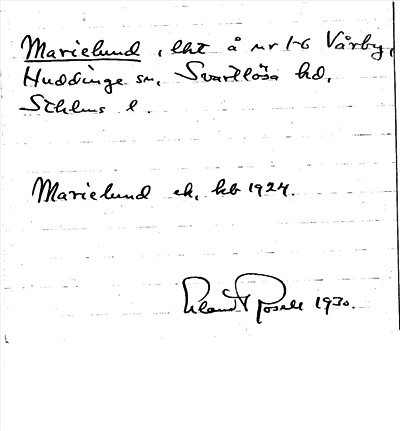 Marielund, lht å nr 1-6 Vårby,
Huddinge sn, Svartlösa hd,
Sthlms l.
Marielund ek, hb 1924.
1930.